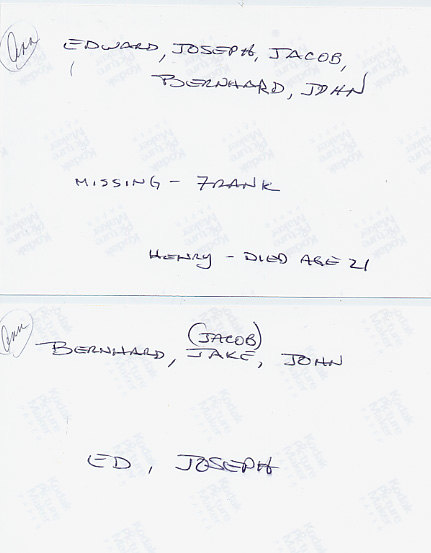 Ann
EDWARD, JOSEPH, JACOB,
BERNHARD, JOHN
MISSING - FRANK
HENRY - DIED AGE 21
Ann
(JACOB)
BERNHARD, JAKE, JOHN
ED, JOSEPH